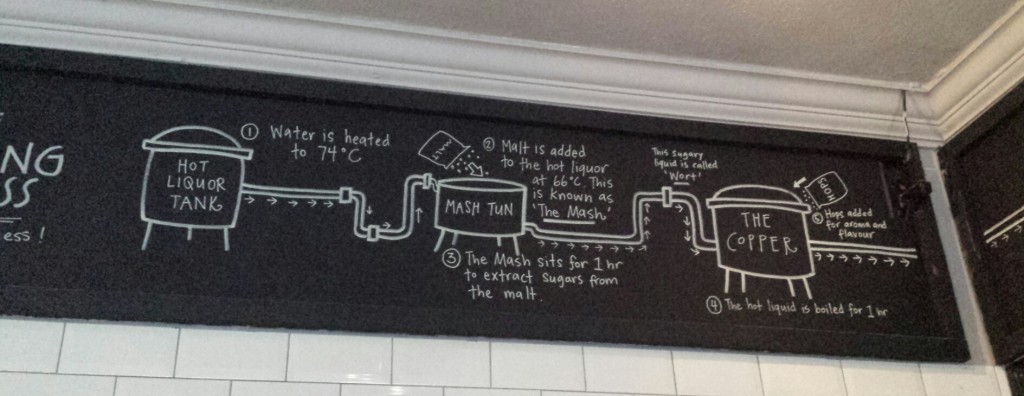 NG
SS
ess!
HOT
LIQUOR
TANK
① Water is heated
to 74°C
MALT
② Malt is added
to the hot liquor
at 66°C. This
is known as
'The Mash.'
MASH TUN
③ The Mash sits for 1hr
to extract sugars from
the malt.
This sugary
liquid is called
'Wort'
THE
COPPER
④ The hot liquid is boiled for 1hr
HOPS
⑤ Hops added
for aroma and
flavour